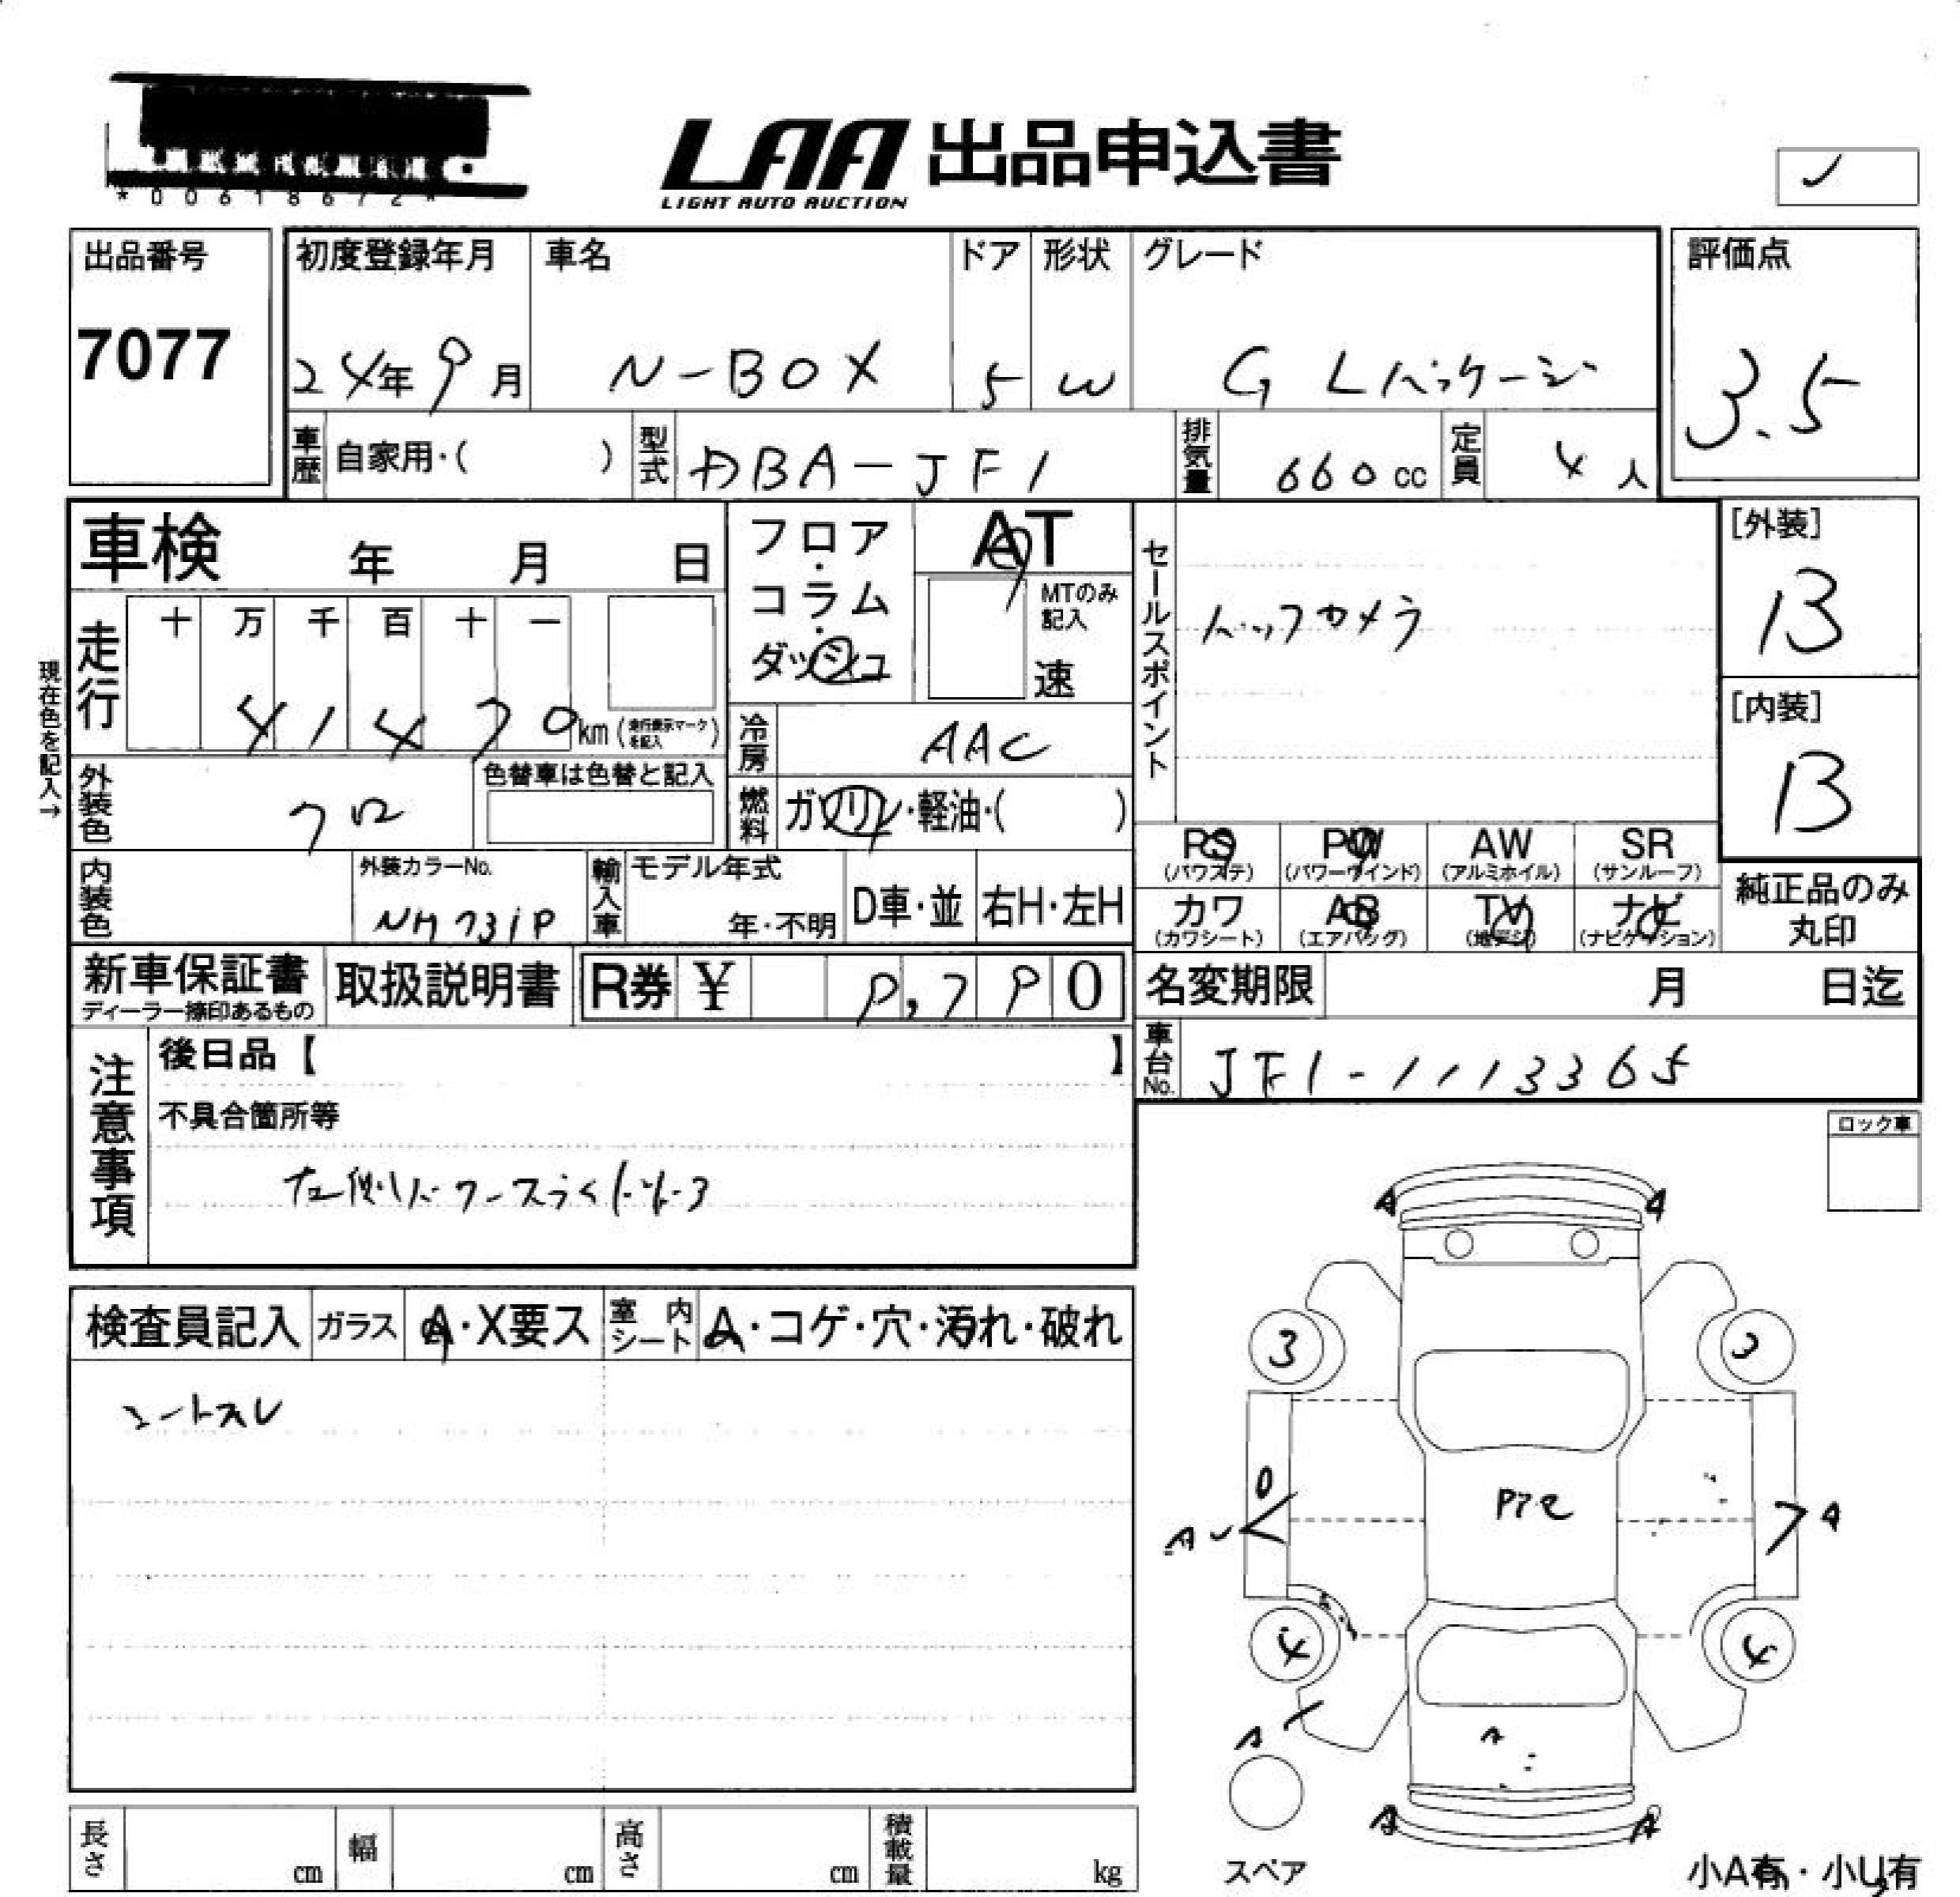 *00618672*
LAA 出品申込書
LIGHT AUTO AUCTION
出品番号
7077
初度登録年月
24年9月
車名
N-BOX
ドア
5
形状
W
グレード
G Lパッケージ
評価点
3.5
車歴 自家用・( )
型式 DBA-JF1
排気量 660cc
定員 4人
車検 年 月 日
フロア・コラム・ダッシュ
AT
MTのみ記入
速
セールスポイント
バックカメラ
[外装]
B
[内装]
B
現在色を記入→
走行
十 万 千 百 十 一
41470km (走行表示マークを記入)
冷房 AAC
外装色 クロ
色替車は色替と記入
燃料 ガソリン・軽油・( )
PS (パワステ)
PW (パワーウインド)
AW (アルミホイル)
SR (サンルーフ)
内装色
外装カラーNo.
NH731P
輸入車
モデル年式
年・不明
D車・並
右H・左H
カワ (カワシート)
AB (エアバッグ)
TV (地デジ)
ナビ (ナビゲーション)
純正品のみ丸印
新車保証書
ディーラー捺印あるもの
取扱説明書
R券 ¥
名変期限 月 日迄
車台No. JF1-1113365
注意事項
後日品【 】
不具合箇所等
ロック車
検査員記入
ガラス A・X要ス
室内シート A・コゲ・穴・汚れ・破れ
シートスレ
A A
3 3
A A
4 4
A
A
A A
長さ cm
幅 cm
高さ cm
積載量 kg
スペア
小A有・小U有